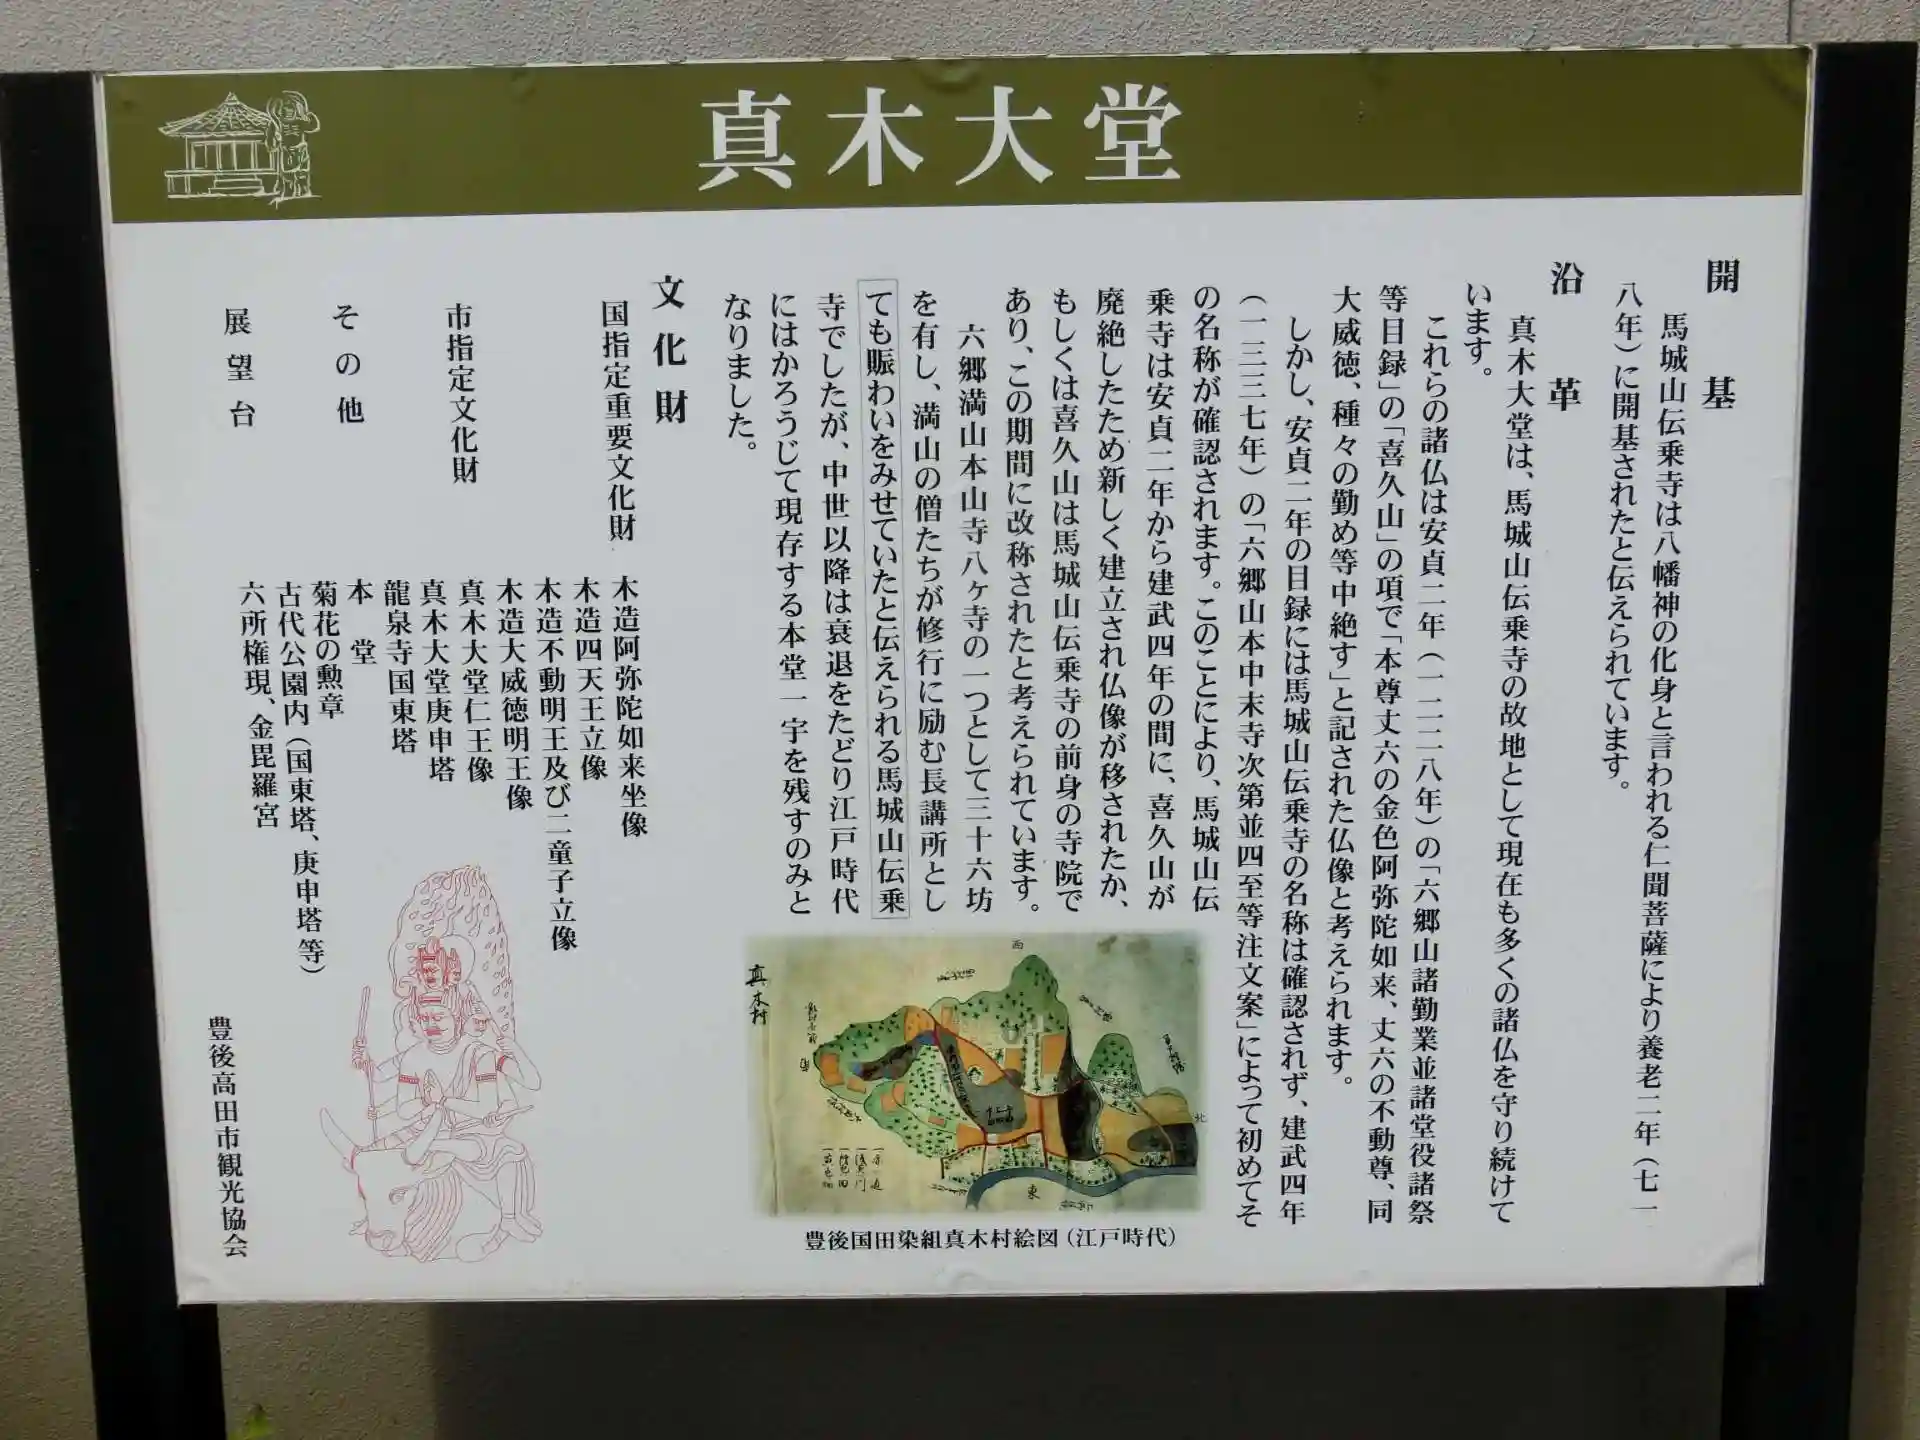 真木大堂
開基
馬城山伝乗寺は八幡神の化身と言われる仁聞菩薩により養老二年（七一
八年）に開基されたと伝えられています。
沿革
真木大堂は、馬城山伝乗寺の故地として現在も多くの諸仏を守り続けて
います。
これらの諸仏は安貞二年（一二二八年）の「六郷山諸勤業並諸堂役諸祭
等目録」の「喜久山」の項で「本尊丈六の金色阿弥陀如来、丈六の不動尊、同
大威徳、種々の勤め等中絶す」と記された仏像と考えられます。
しかし、安貞二年の目録には馬城山伝乗寺の名称は確認されず、建武四年
（一三三七年）の「六郷山本中末寺次第並四至等注文案」によって初めてそ
の名称が確認されます。このことにより、馬城山伝
乗寺は安貞二年から建武四年の間に、喜久山が
廃絶したため新しく建立され仏像が移されたか、
もしくは喜久山は馬城山伝乗寺の前身の寺院で
あり、この期間に改称されたと考えられています。
六郷満山本山寺八ヶ寺の一つとして三十六坊
を有し、満山の僧たちが修行に励む長講所とし
ても賑わいをみせていたと伝えられる馬城山伝乗
寺でしたが、中世以降は衰退をたどり江戸時代
にはかろうじて現存する本堂一宇を残すのみと
なりました。
文化財
国指定重要文化財
木造阿弥陀如来坐像
木造四天王立像
木造不動明王及び二童子立像
木造大威徳明王像
市指定文化財
真木大堂仁王像
真木大堂庚申塔
龍泉寺国東塔
その他
本堂
菊花の勲章
古代公園内（国東塔、庚申塔等）
展望台
六所権現、金毘羅宮
豊後高田市観光協会
真木村
西
北
東
豊後国田染組真木村絵図（江戸時代）